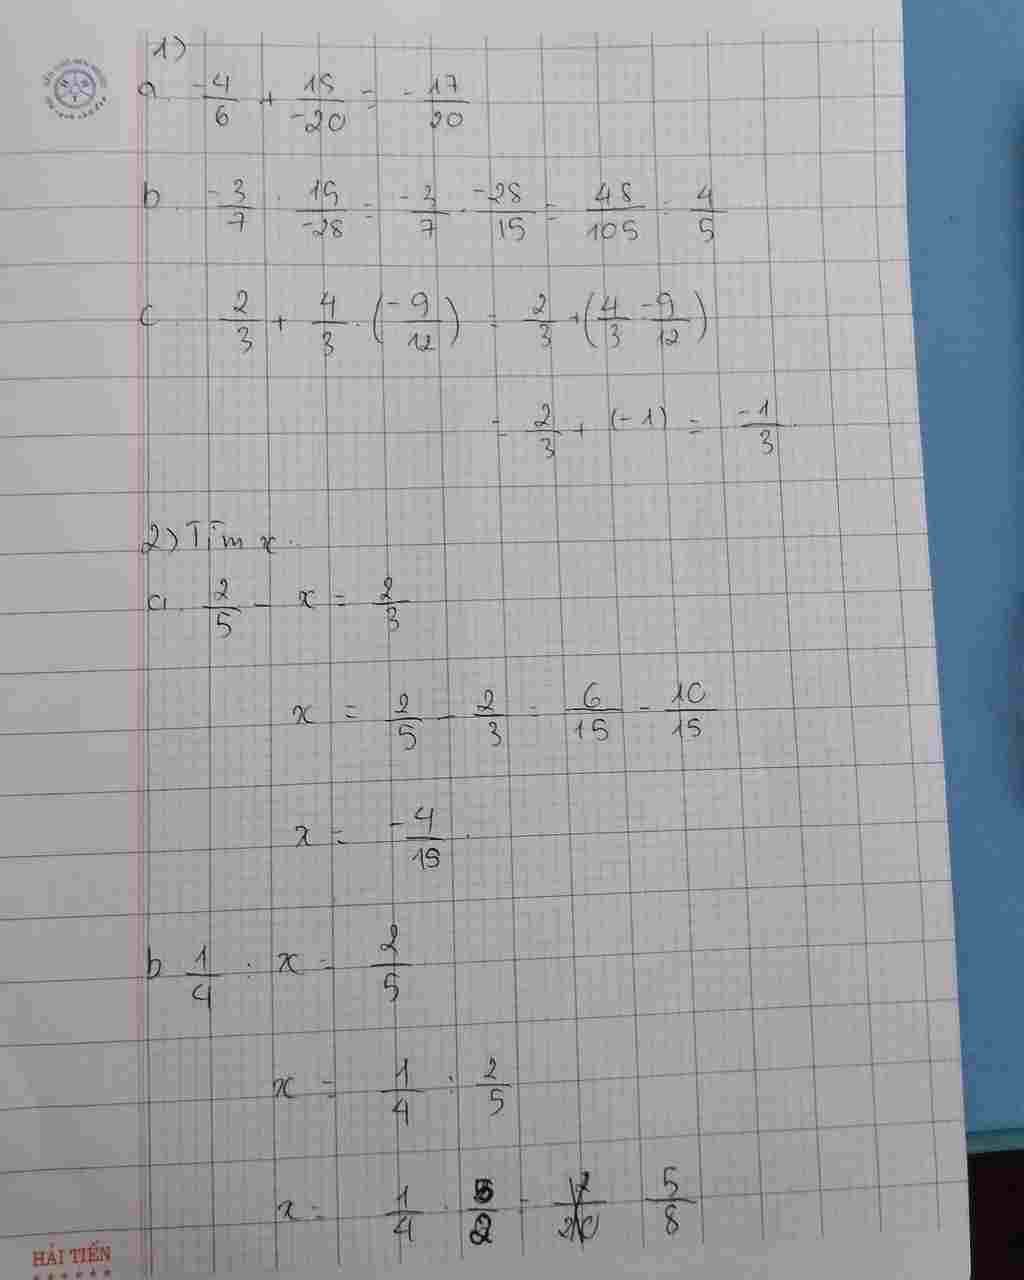 1)
a. -4/6 + 15/-20 = -17/20
b. -3/7 : 15/-28 = -3/7 . -28/15 = 48/105 = 4/5
c. 2/3 + 4/3 . (-9/12) = 2/3 + (4/3 . -9/12)
= 2/3 + (-1) = -1/3.
2) Tìm x.
a. 2/5 - x = 2/3
x = 2/5 - 2/3 = 6/15 - 10/15
x = -4/15.
b 1/4 : x = 2/5
x = 1/4 : 2/5
x = 1/4 . 5/2 = 5/8
HẢI TIẾN